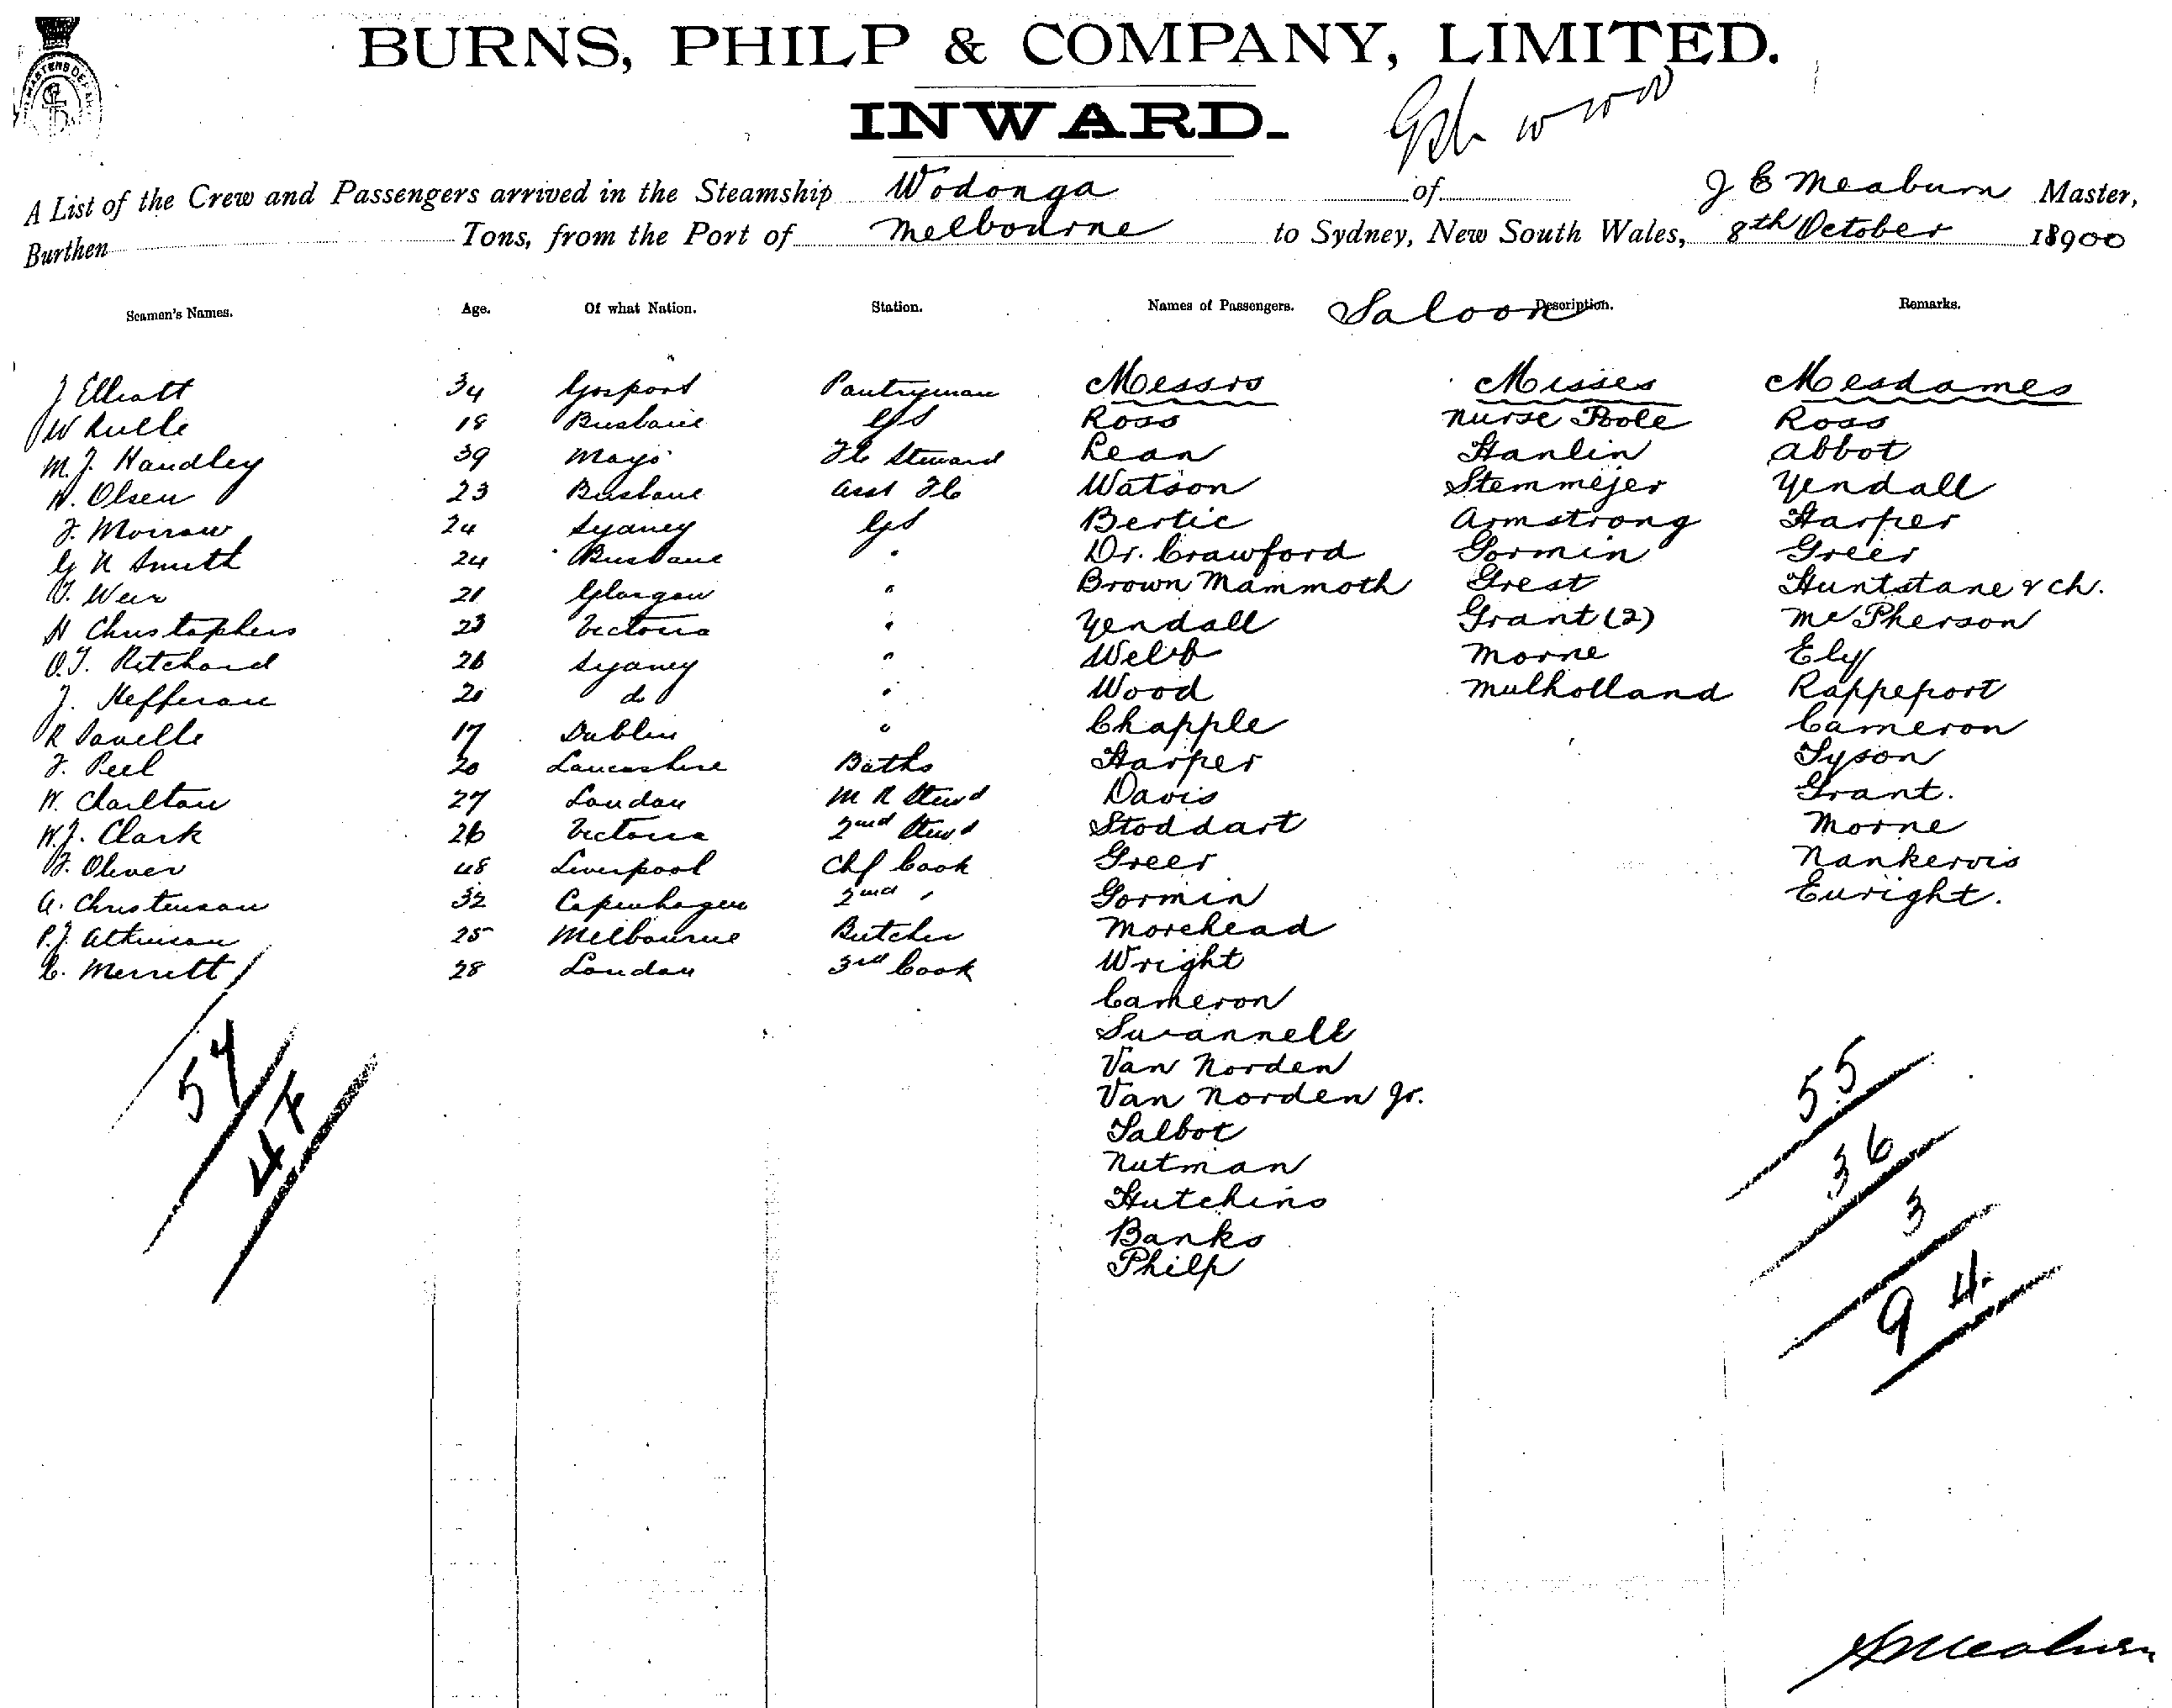 BURNS, PHILP & COMPANY, LIMITED.
INWARD.
A List of the Crew and Passengers arrived in the Steamship Wodonga of J E Meaburn Master,
Burthen Tons, from the Port of Melbourne to Sydney, New South Wales, 8th October 18900
Seamen's Names. Age. Of what Nation. Station. Names of Passengers. Saloon Description. Remarks.
J Elliott 34 Gosport Pantryman Messrs Misses Mesdames
W 18 Brisbane GS Ross Nurse Poole Ross
M.J. Handley 39 Mayo F.C Steward Lean Hanlin Abbot
N. Olsen 23 Brisbane Asst FC Watson Stemmejer Yendall
F. Morrow 24 Sydney GS Bertie Armstrong Harper
G N Smith 24 Brisbane " Dr. Crawford Gormin Greer
J. Weir 21 Glasgow " Brown Mammoth Grest Huntstane & ch.
H Christophers 23 Victoria " Yendall Grant (2) McPherson
O.J. Ritchard 26 Sydney " Webb Morne Ely
J. Hefferan 20 do " Wood Mulholland Rappeport
R 17 Dublin " Chapple Cameron
F. Peel 20 Lancashire Baths Harper Tyson
W. Charlton 27 London M R Stewd Davis Grant.
W.J. Clark 26 Victoria 2nd Stewd Stoddart Morne
F. Oliver 48 Liverpool Chf Cook Greer Nankervis
A. Christensen 32 Copenhagen 2nd " Gormin Euright.
P.J. Atkinson 25 Melbourne Butcher Morehead
C. Merrett 28 London 3rd Cook Wright
Cameron
Suvannell
Van Norden
Van Norden Jr.
Talbot
Nutman
Hutchins
Banks
Philp
57
47
55
36
3
94